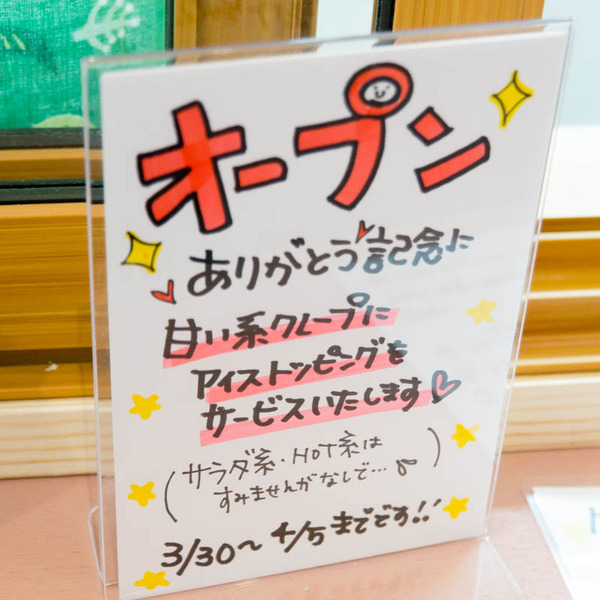 オープン
ありがとう記念に
甘い系クレープに
アイストッピングを
サービスいたします
(サラダ系・HOT系は
すみませんがなしで...)
3/30〜4/5までです!!